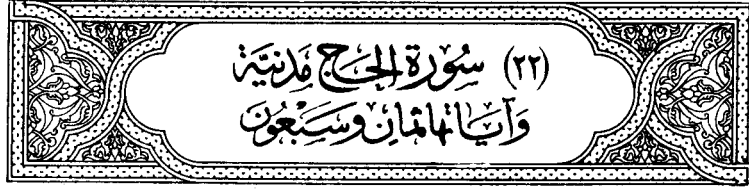 (٢٢) سُورَةِ الحَجّ مَدَنِيَّة
وَآيَاتهَا ثَمَان وَسَبْعُون